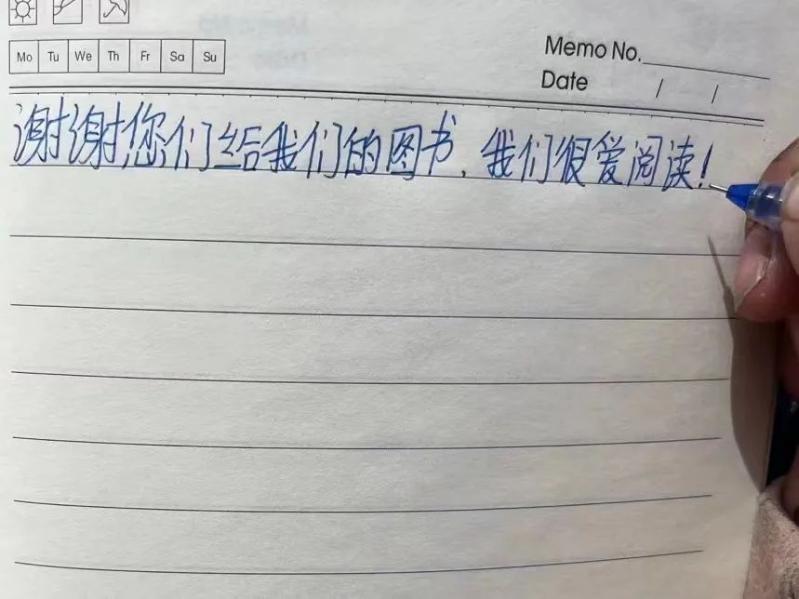 Mo Tu We Th Fr Sa Su
Memo No.
Date / /
谢谢您们给我们的图书,我们很爱阅读!